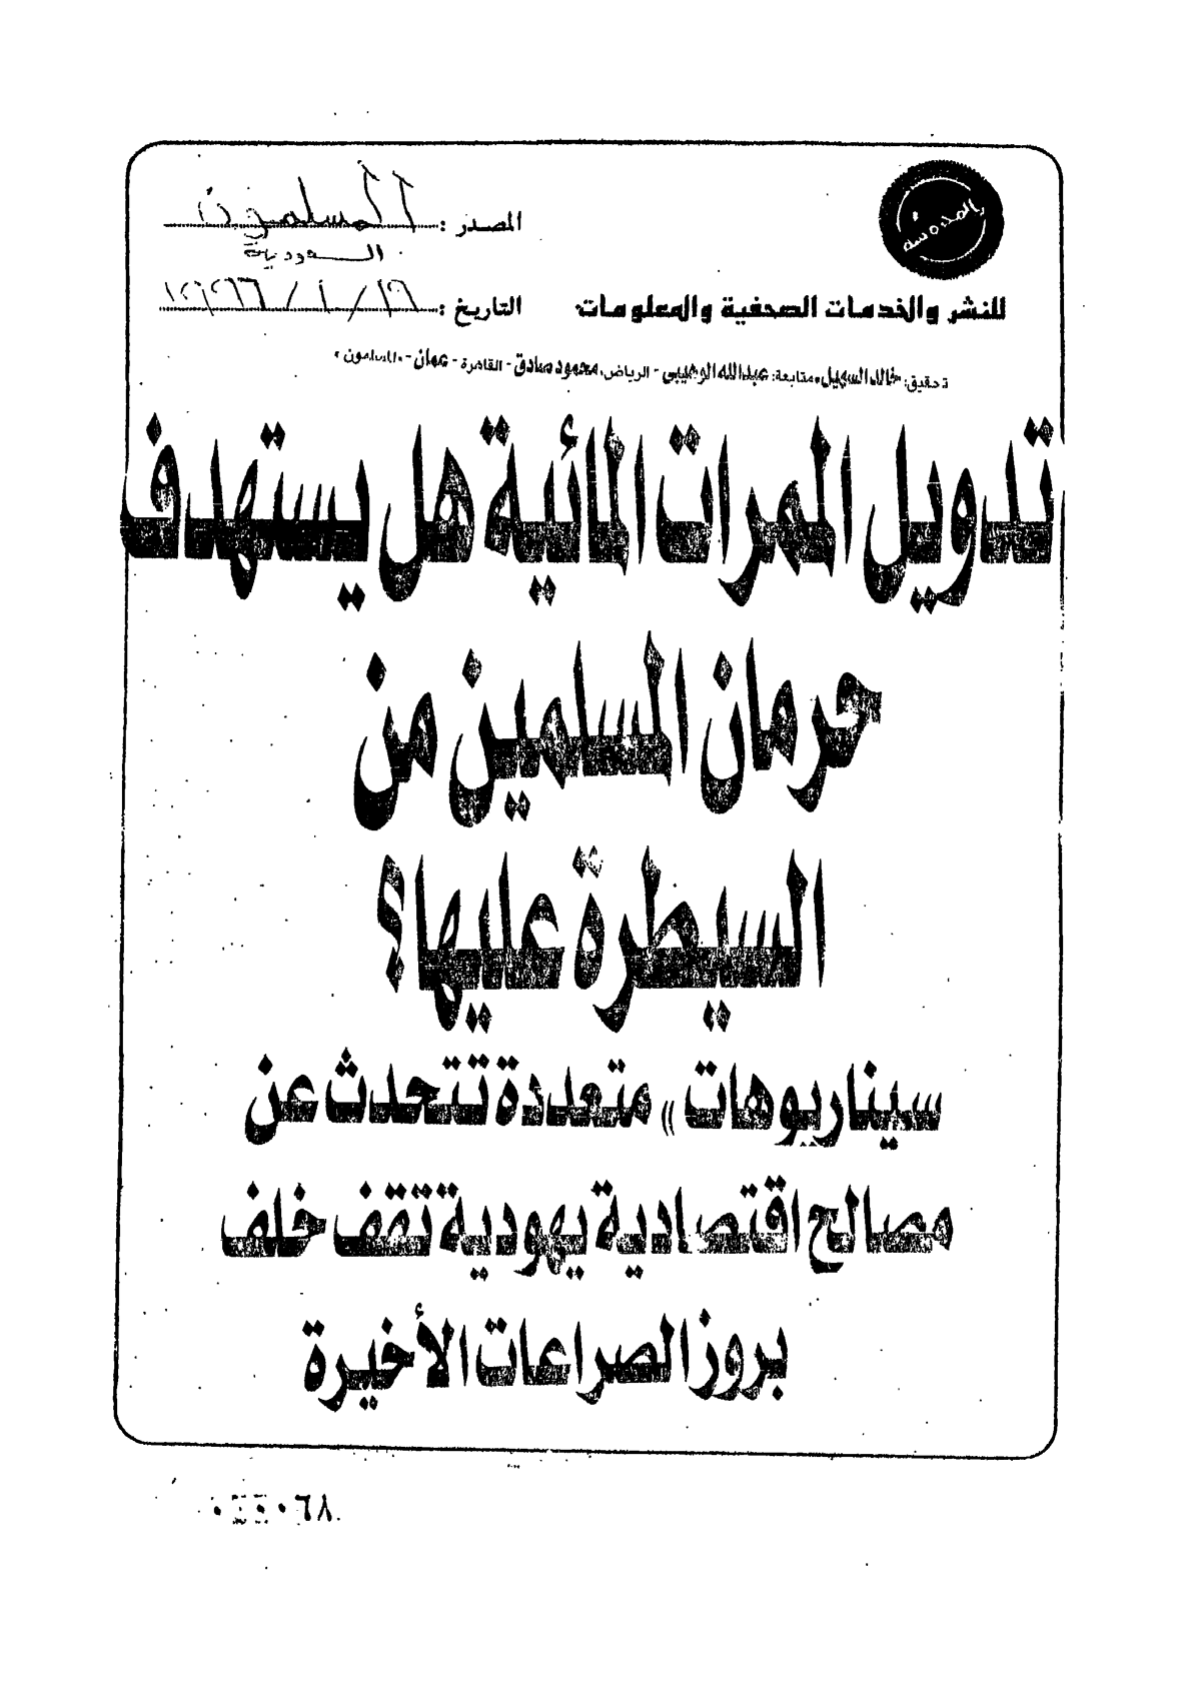 المحروسة
المصدر : المسلمون
السعودية
للنشر والخدمات الصحفية والمعلومات
التاريخ :
تحقيق: خالد السهيل، متابعة: عبدالله الوهيبي - الرياض، محمود صادق - القاهرة - عمان - «المسلمون»
تدويل الممرات المائية هل يستهدف
حرمان المسلمين من
السيطرة عليها؟
سيناريوهات » متعددة تتحدث عن
مصالح اقتصادية يهودية تقف خلف
بروز الصراعات الأخيرة